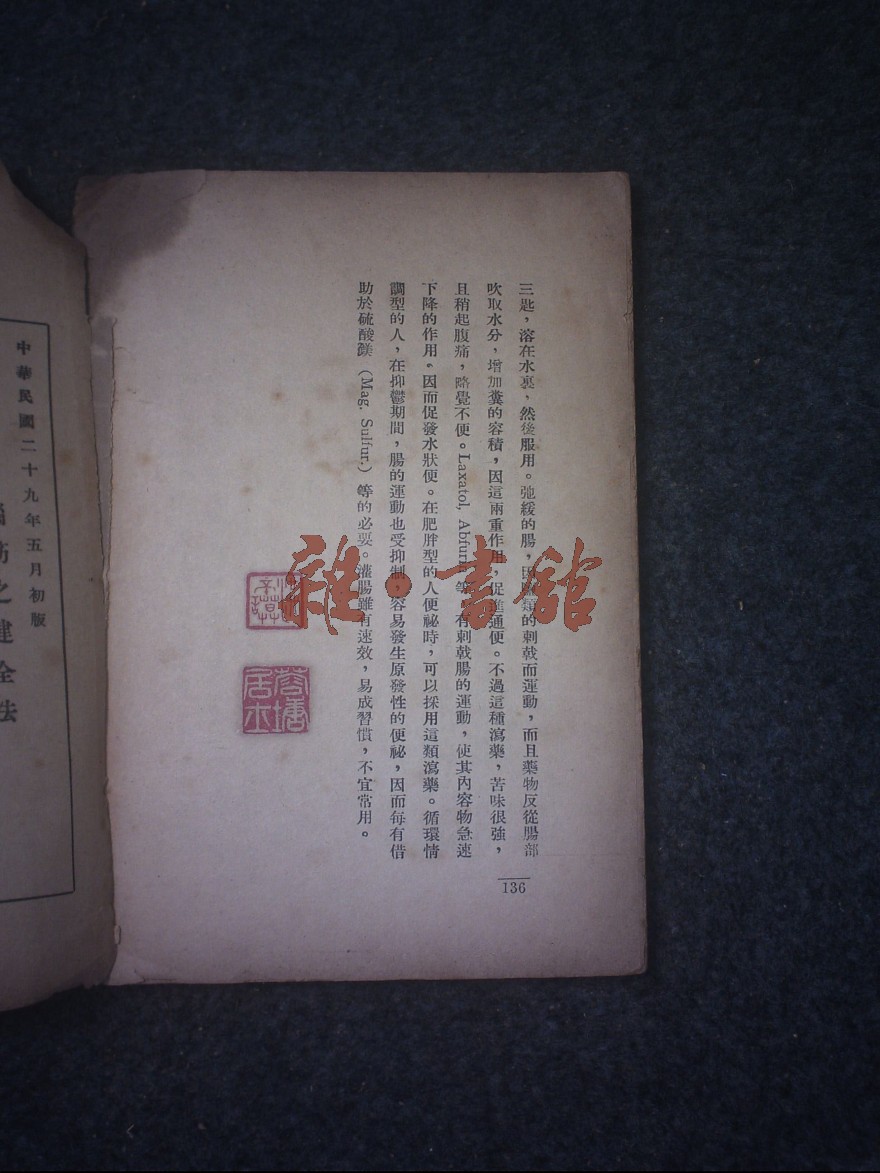 三匙，溶在水裏，然後服用。弛緩的腸，因鹽類的刺戟而運動，而且藥物反從腸部
吹取水分，增加糞的容積，因這兩重作用，促進通便。不過這種瀉藥，苦味很強，
且稍起腹痛，略覺不便。Laxatol, Abfurin等，有刺戟腸的運動，使其內容物急速
下降的作用。因而促發水狀便。在肥胖型的人便祕時，可以採用這類瀉藥。循環情
調型的人，在抑鬱期間，腸的運動也受抑制，容易發生原發性的便祕，因而每有借
助於硫酸鎂（Mag. Sulfur.）等的必要。灌腸雖有速效，易成習慣，不宜常用。
136
雜·書館
蓉塘
居士
中華民國二十九年五月初版
之健全法